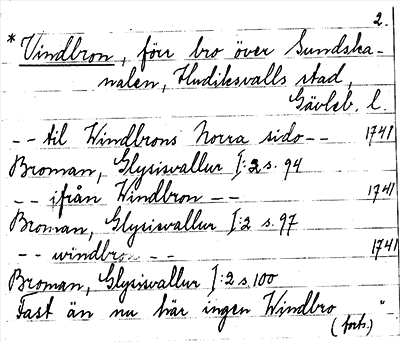 2.
* Vindbron, förr bro över Sundska-
nalen, Hudiksvalls stad,
Gävleb. l.
-- til Windbrons Norra sido -- 1741
Broman, Glysisvallur I:2 s. 94
-- ifrån Windbron -- 1741
Broman, Glysisvallur I:2 s. 97
-- windbron -- 1741
Broman, Glysisvallur I:2 s. 100
Fast än nu här ingen Windbro "
(forts.)